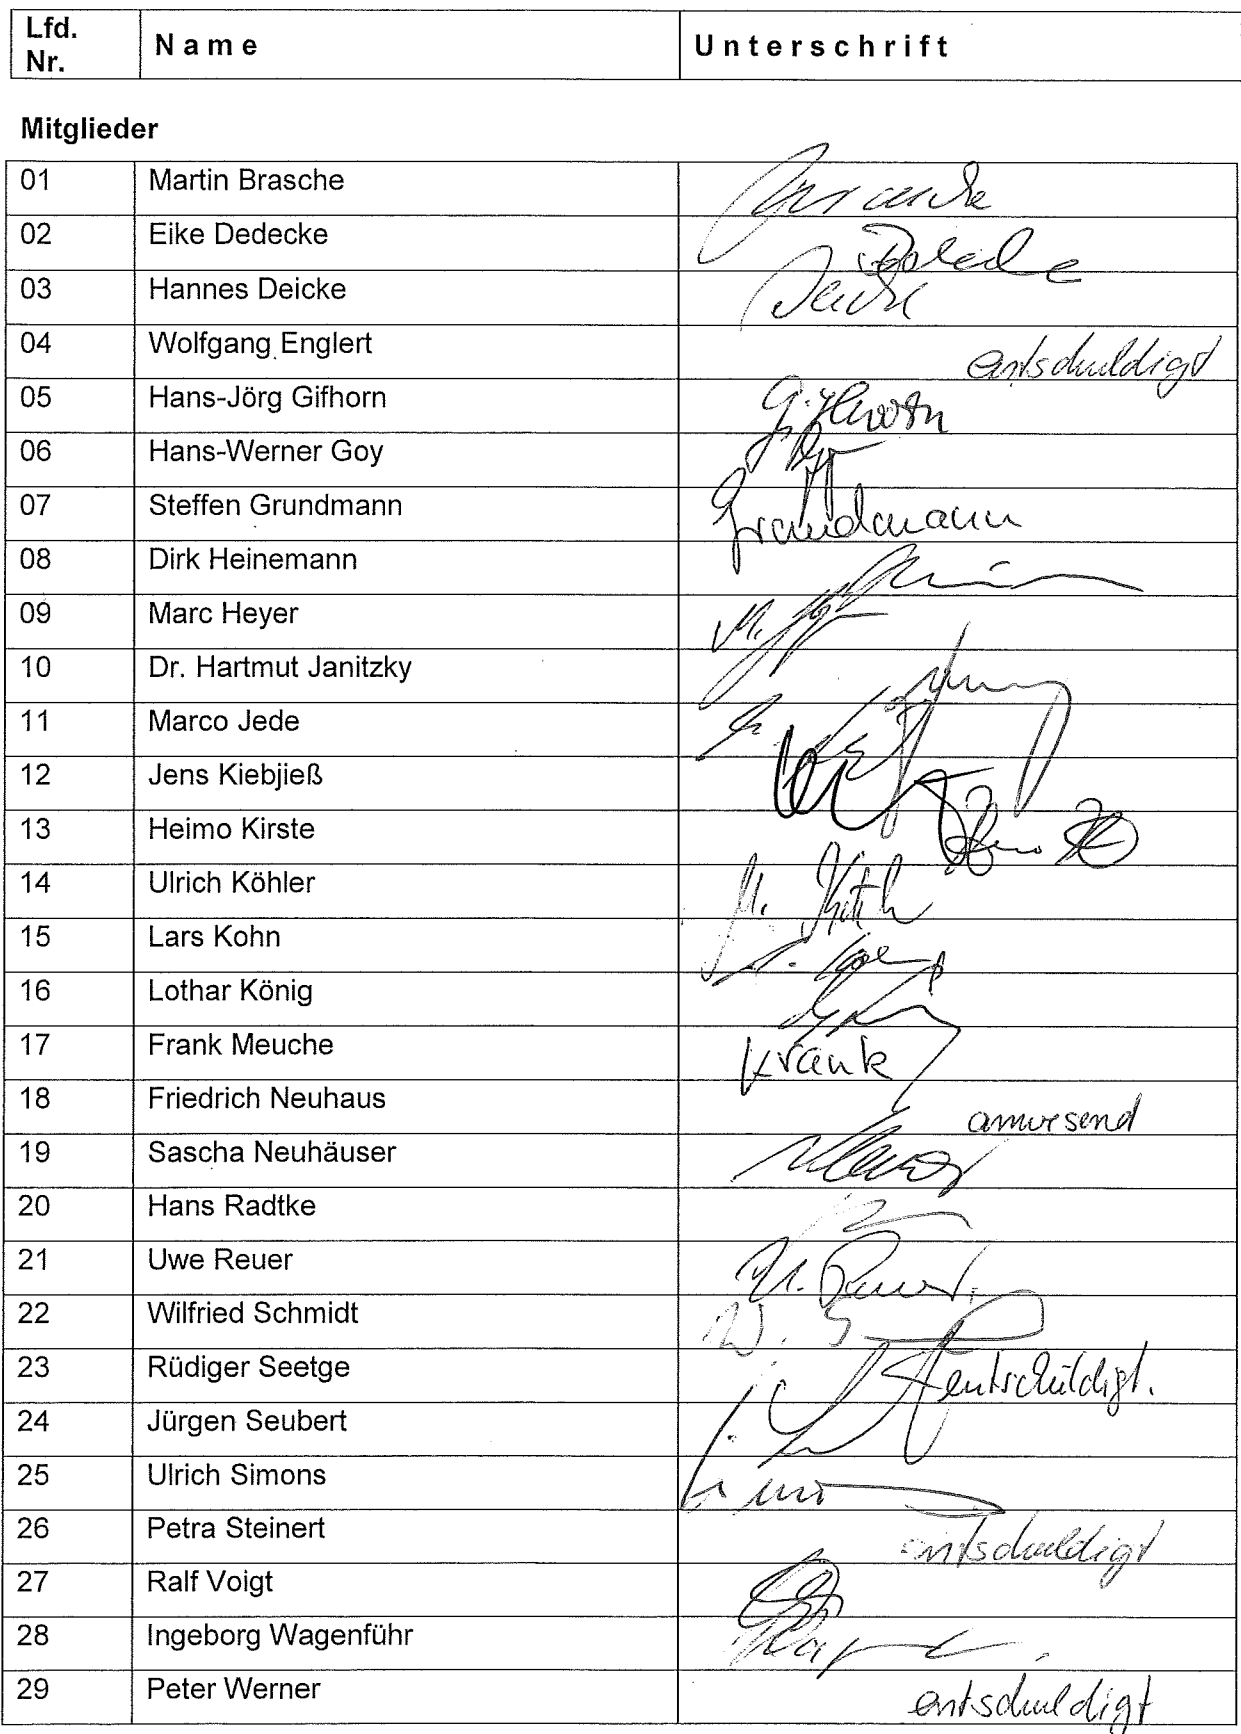 Lfd. Nr. Name Unterschrift
Mitglieder
01 Martin Brasche
02 Eike Dedecke
03 Hannes Deicke
04 Wolfgang Englert entschuldigt
05 Hans-Jörg Gifhorn Gifhorn
06 Hans-Werner Goy
07 Steffen Grundmann Grundmann
08 Dirk Heinemann
09 Marc Heyer
10 Dr. Hartmut Janitzky
11 Marco Jede
12 Jens Kiebjieß
13 Heimo Kirste
14 Ulrich Köhler
15 Lars Kohn
16 Lothar König
17 Frank Meuche krank
18 Friedrich Neuhaus anwesend
19 Sascha Neuhäuser
20 Hans Radtke
21 Uwe Reuer U. Reuer
22 Wilfried Schmidt
23 Rüdiger Seetge entschuldigt.
24 Jürgen Seubert
25 Ulrich Simons
26 Petra Steinert entschuldigt
27 Ralf Voigt
28 Ingeborg Wagenführ
29 Peter Werner entschuldigt